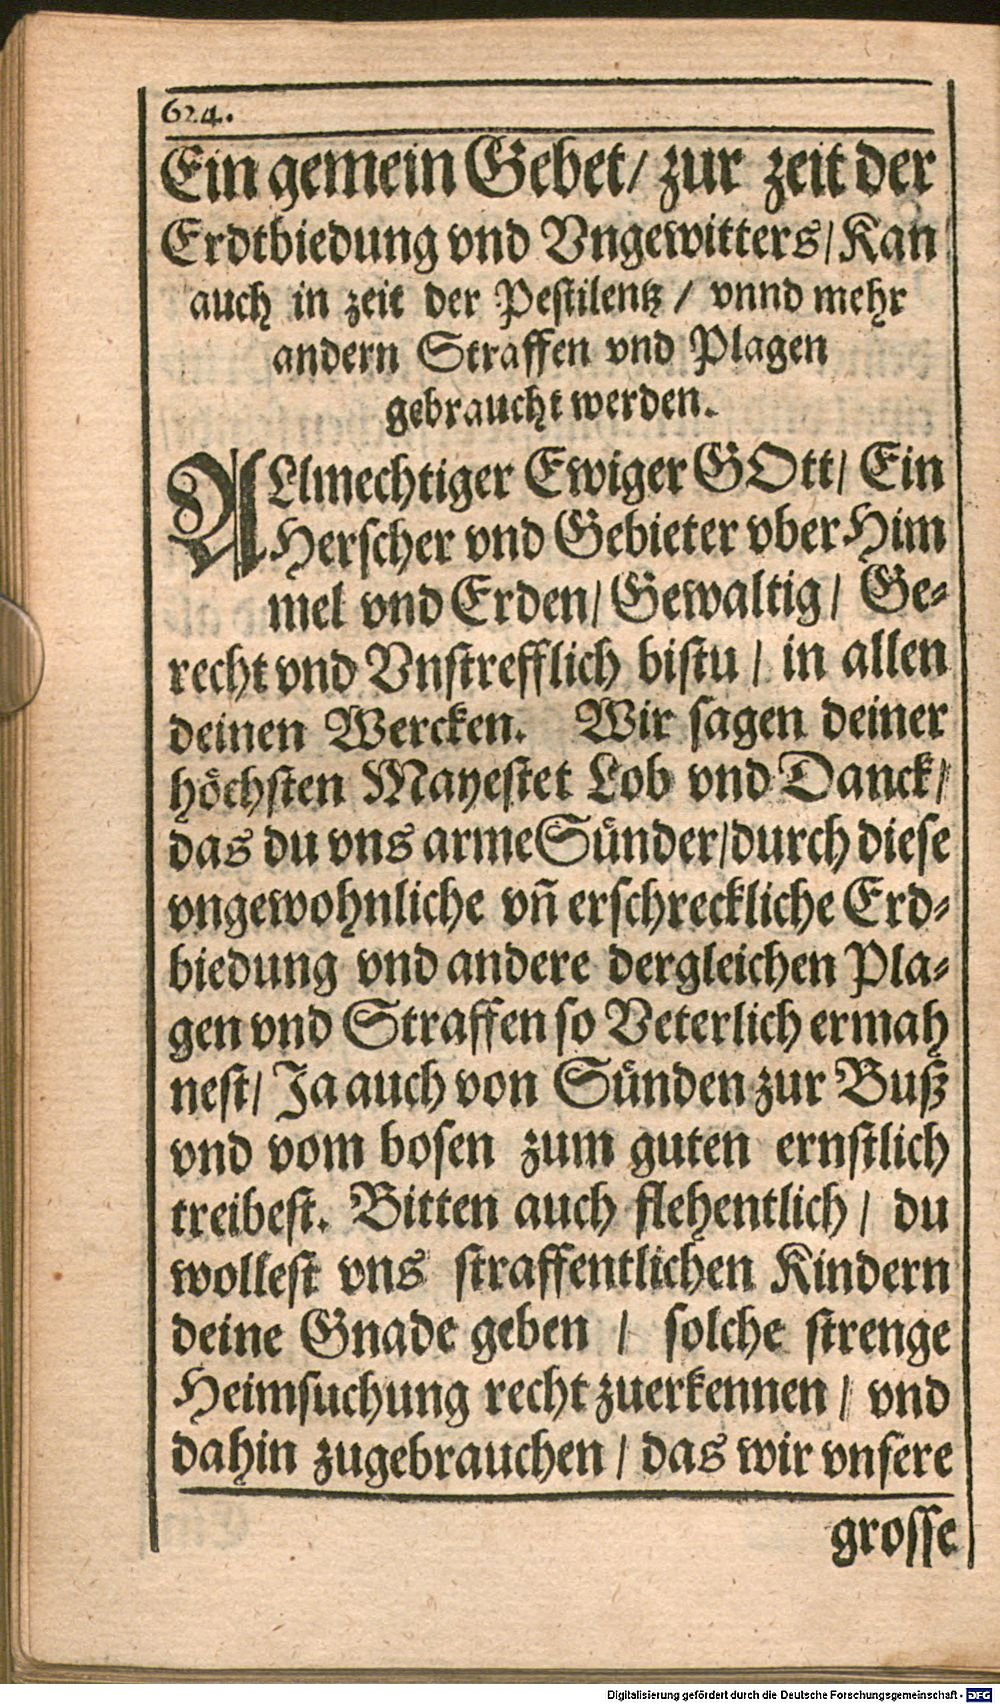 624.
Ein gemein Gebet/ zur zeit der
Erdtbiedung vnd Vngewitters/ Kan
auch in zeit der Pestilentz / vnnd mehr
andern Straffen vnd Plagen
gebraucht werden.
ALlmechtiger Ewiger GOtt/ Ein
Herscher vnd Gebieter vber Him
mel vnd Erden/ Gewaltig/ Ge-
recht vnd Vnstrefflich bistu / in allen
deinen Wercken. Wir sagen deiner
höchsten Mayestet Lob vnd Danck/
das du vns arme Sünder/durch diese
vngewohnliche vñ erschreckliche Erd-
biedung vnd andere dergleichen Pla-
gen vnd Straffen so Veterlich ermah
nest/ Ja auch von Sünden zur Buß
vnd vom bosen zum guten ernstlich
treibest. Bitten auch flehentlich / du
wollest vns straffentlichen Kindern
deine Gnade geben / solche strenge
Heimsuchung recht zuerkennen / vnd
dahin zugebrauchen / das wir vnsere
grosse
Digitalisierung gefördert durch die Deutsche Forschungsgemeinschaft - DFG